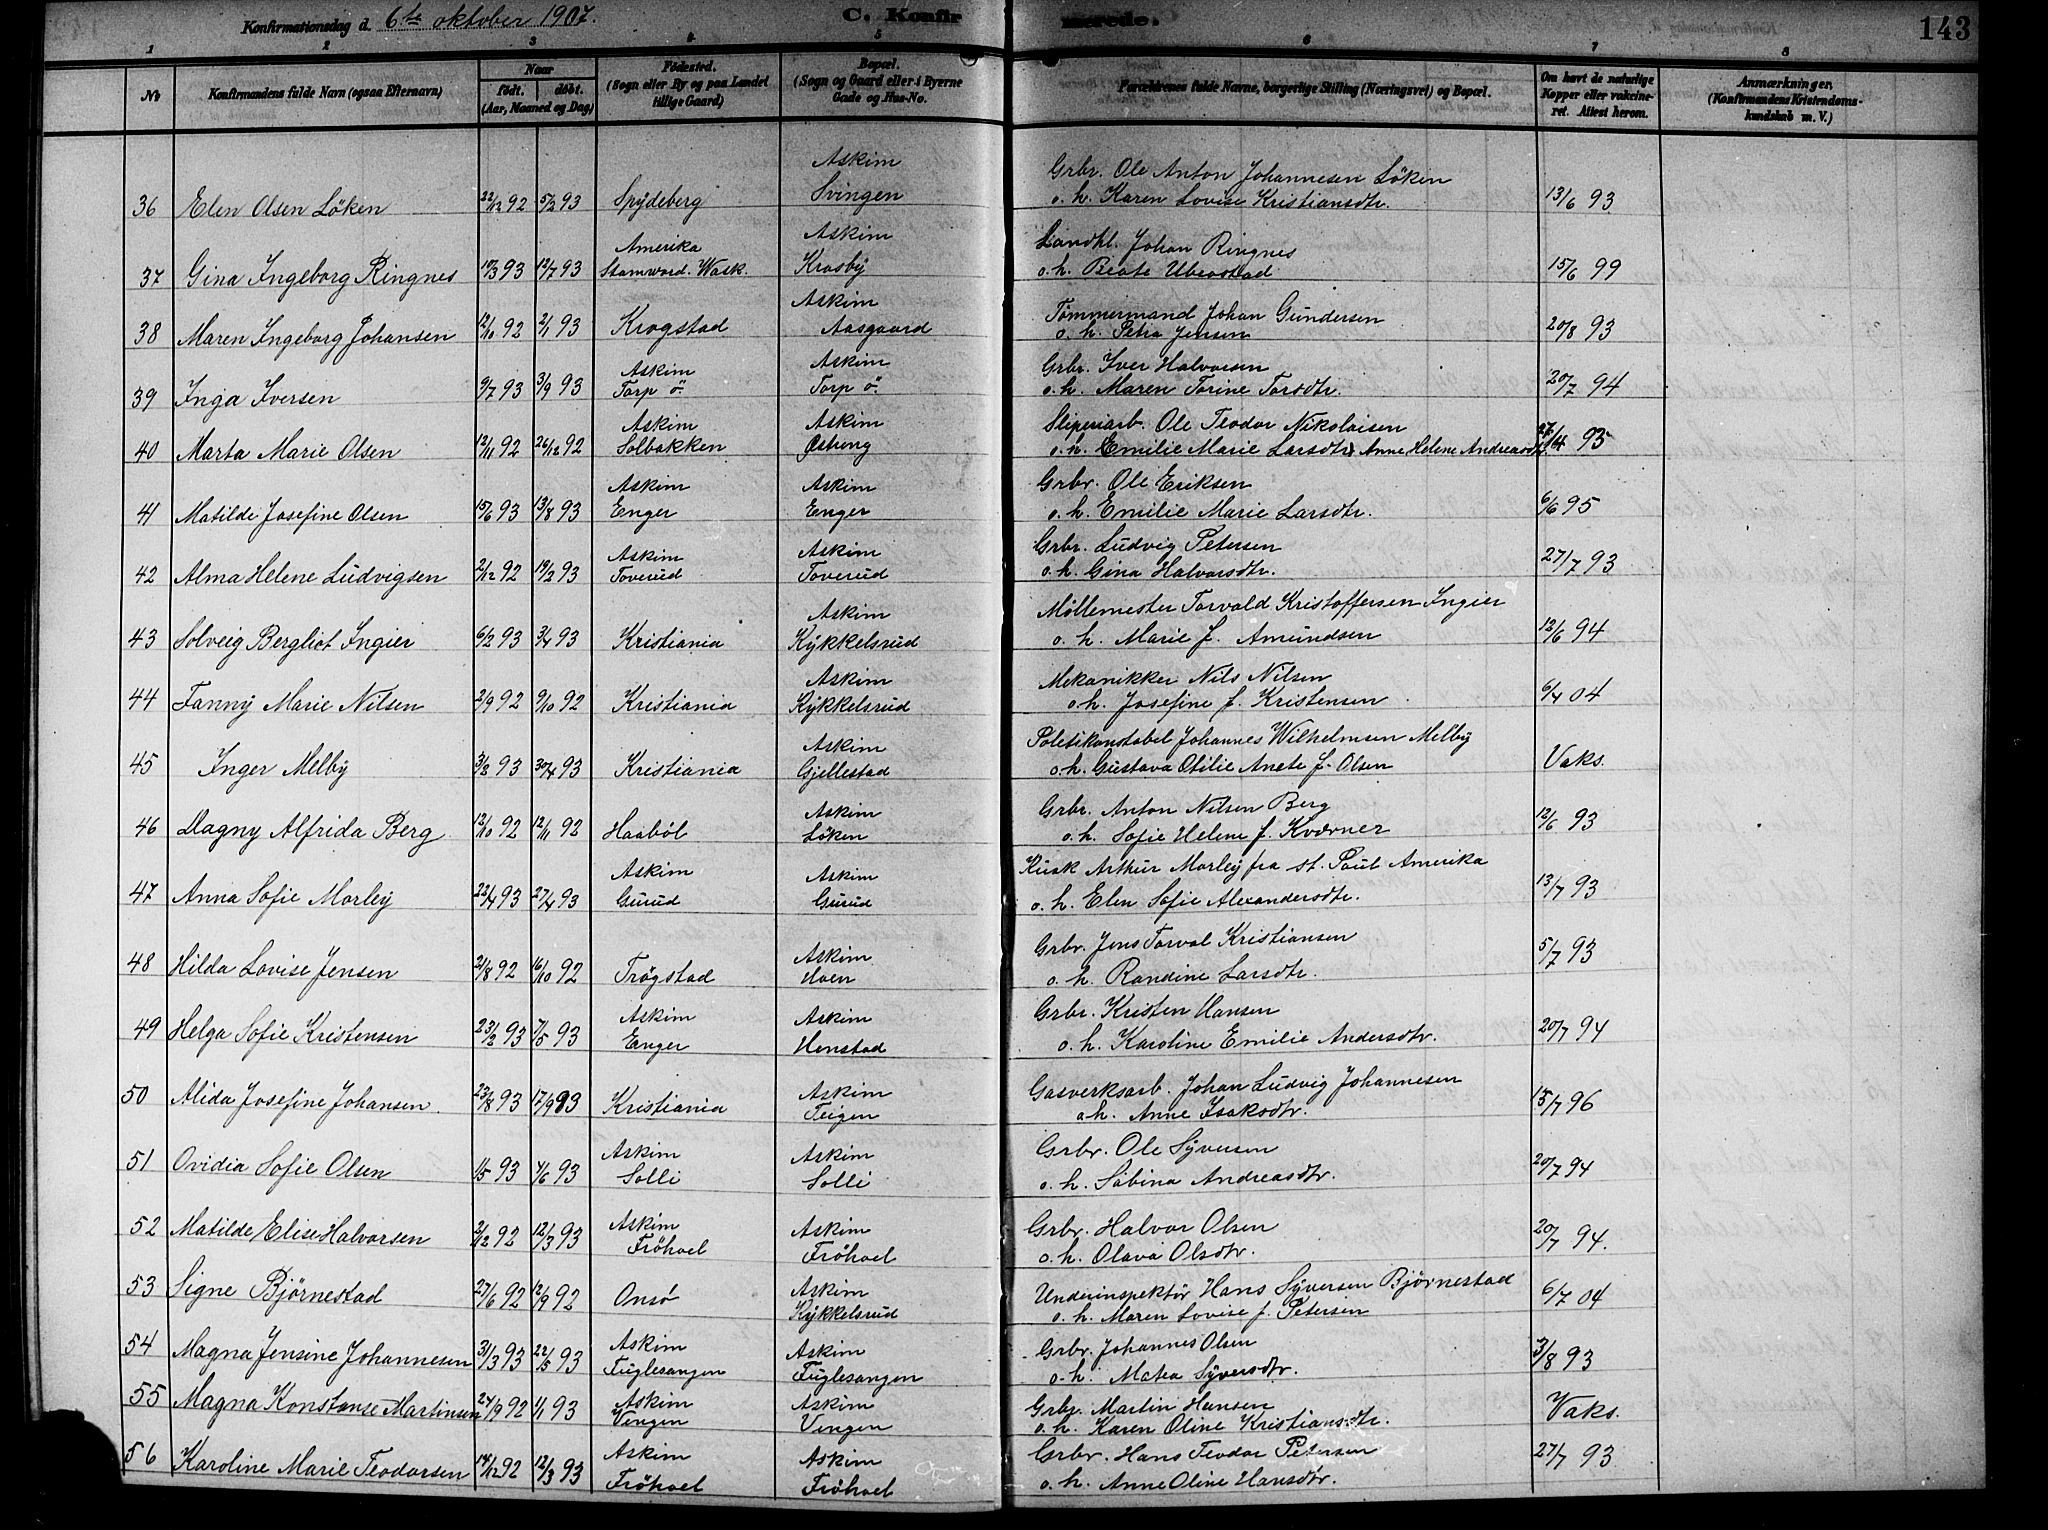 Konfirmationsdag d. 6te oktober 1907. C. Konfirmerede. 143
1 2 3 4 5 6 7 8
No Konfirmandens fulde Navn (ogsaa Efternavn) Naar født. døbt. (Aar, Maaned og Dag) Fødested. (Sogn eller By og paa Landet tillige Gaard) Bopæl. (Sogn og Gaard eller i Byerne Gade og Hus-No. Forældrenes fulde Navne, borgerlige Stilling (Næringsvei) og Bopæl. Om havt de naturlige Kopper eller vaccineret. Attest herom. Anmærkninger. (Konfirmandens Kristendomskundskab m. V.)
Askim Grbr. Ole Anton Johannesen Löken
36 Elen Olsen Löken 22/12 92 5/2 93 Spydeberg Svingen o. h. Karen Lovise Kristiansdtr. 13/6 93
Amerika Askim Landhl. Johan Ringnes
37 Gina Ingeborg Ringnes 10/3 93 12/7 93 Stamword. Wask. Krosby o. h. Beate 15/6 99
Askim Tømmermand Johan Gundersen
38 Maren Ingeborg Johansen 12/10 92 2/1 93 Krogstad Aasgaard o. h. Petra Jensen 20/8 93
Askim Askim Grbr. Iver Halvorsen
39 Inga Iversen 9/7 93 3/9 93 Torp ö. Torp ö. o. h. Maren Torine Torsdtr. 20/7 94
Askim Askim Sliperiarb. Ole Teodor Nikolaisen
40 Marta Marie Olsen 12/11 92 26/12 92 Solbakken Østeng o. h. Emilie Marie Larsdtr. Anne Helene Andreasdtr. 27/4 95
Askim Askim Grbr. Ole Eriksen
41 Matilde Josefine Olsen 15/6 93 13/8 93 Enger Enger o. h. Emilie Marie Larsdtr. 6/6 95
Askim Askim Grbr. Ludvig Petersen
42 Alma Helene Ludvigsen 2/12 92 19/2 93 Toverud Toverud o. h. Gina Halvorsdtr. 27/7 93
Askim Möllemester Torvald Kristoffersen Ingier
43 Solveig Bergliot Ingier 6/2 93 3/4 93 Kristiania Kykkelsrud o. h. Marie f. Amundsen 12/6 94
Askim Mekanikker Nils Nilsen
44 Fanny Marie Nilsen 2/9 92 9/10 92 Kristiania Kykkelsrud o. h. Josefine f. Kristensen 6/4 04
Askim Politikonstabel Johannes Wilhelmsen Melby
45 Inger Melby 3/2 93 30/4 93 Kristiania Gjellestad o. h. Gustava Otilie Anete f. Olsen Vaks.
Askim Grbr. Anton Nilsen Berg
46 Dagny Alfrida Berg 12/10 92 12/11 92 Haaböl Löken o. h. Sofie Helene f. Kværner 12/6 93
Askim Askim Kusk Arthur Morley fra St. Paul Amerika
47 Anna Sofie Morley 22/4 93 27/4 93 Gurud Gurud o. h. Elen Sofie Alexandersdtr. 13/7 93
Askim Grbr. Jens Torval Kristiansen
48 Hilda Lovise Jensen 21/8 92 16/10 92 Trögstad Hoen o. h. Randine Larsdtr. 5/7 93
Askim Askim Grbr. Kristen Hansen
49 Helga Sofie Kristensen 23/2 93 7/5 93 Enger Henstad o. h. Karoline Emilie Andersdtr. 20/7 94
Askim Gasverksarb. Johan Ludvig Johannesen
50 Alida Josefine Johansen. 23/8 93 17/9 93 Kristiania Teigen o. h. Anne Isaksdtr. 15/7 96
Askim Askim Grbr. Ole Syversen
51 Ovidia Sofie Olsen 1/5 93 4/6 93 Solli Solli o. h. Sabina Andreasdtr. 20/7 94
Askim Askim Grbr. Halvor Olsen
52 Matilde Elise Halvorsen 2/12 92 12/3 93 Fröhoel Fröhoel o. h. Olava Olsdtr. 20/7 94.
Askim Underinspektör Hans Syversen Bjørnestad
53 Signe Bjørnestad 27/6 92 12/9 92 Onsö Kykkelsrud o. h. Maren Lovise f. Petersen 6/7 04
Askim Askim Grbr. Johannes Olsen
54 Magna Jensine Johannesen 31/3 93 22/5 93 Fuglesangen Fuglesangen o. h. Matea Syversdtr. 3/8 93
Askim Askim Grbr. Martin Hansen
55 Magna Konstanse Martinsen 24/9 92 1/1 93 Vengen Vengen o. h. Karen Oline Kristiansdtr. Vaks.
Askim Askim Grbr. Hans Teodor Petersen
56 Karoline Marie Teodorsen 14/12 92 12/3 93 Fröhoel Fröhoel o. h. Anne Oline Hansdtr. 27/7 93